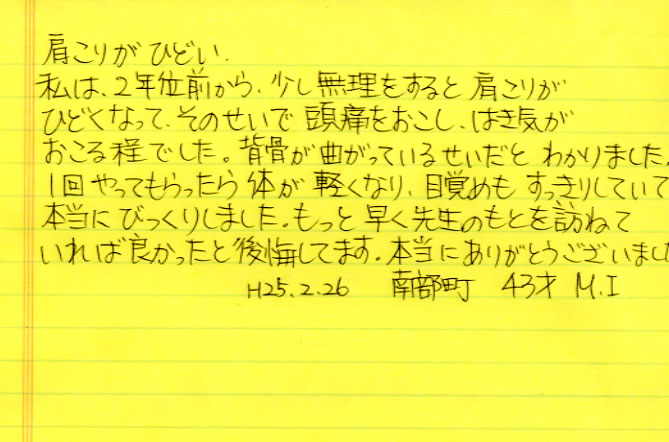 肩こりがひどい.
私は、2年位前から、少し無理をすると肩こりが
ひどくなって、そのせいで頭痛をおこし、はき気が
おこる程でした。背骨が曲がっているせいだとわかりました。
1回やってもらったら体が軽くなり、目覚めもすっきりしていて
本当にびっくりしました。もっと早く先生のもとを訪ねて
いれば良かったと後悔してます。本当にありがとうございまし
H25.2.26 南部町 43才 M.I